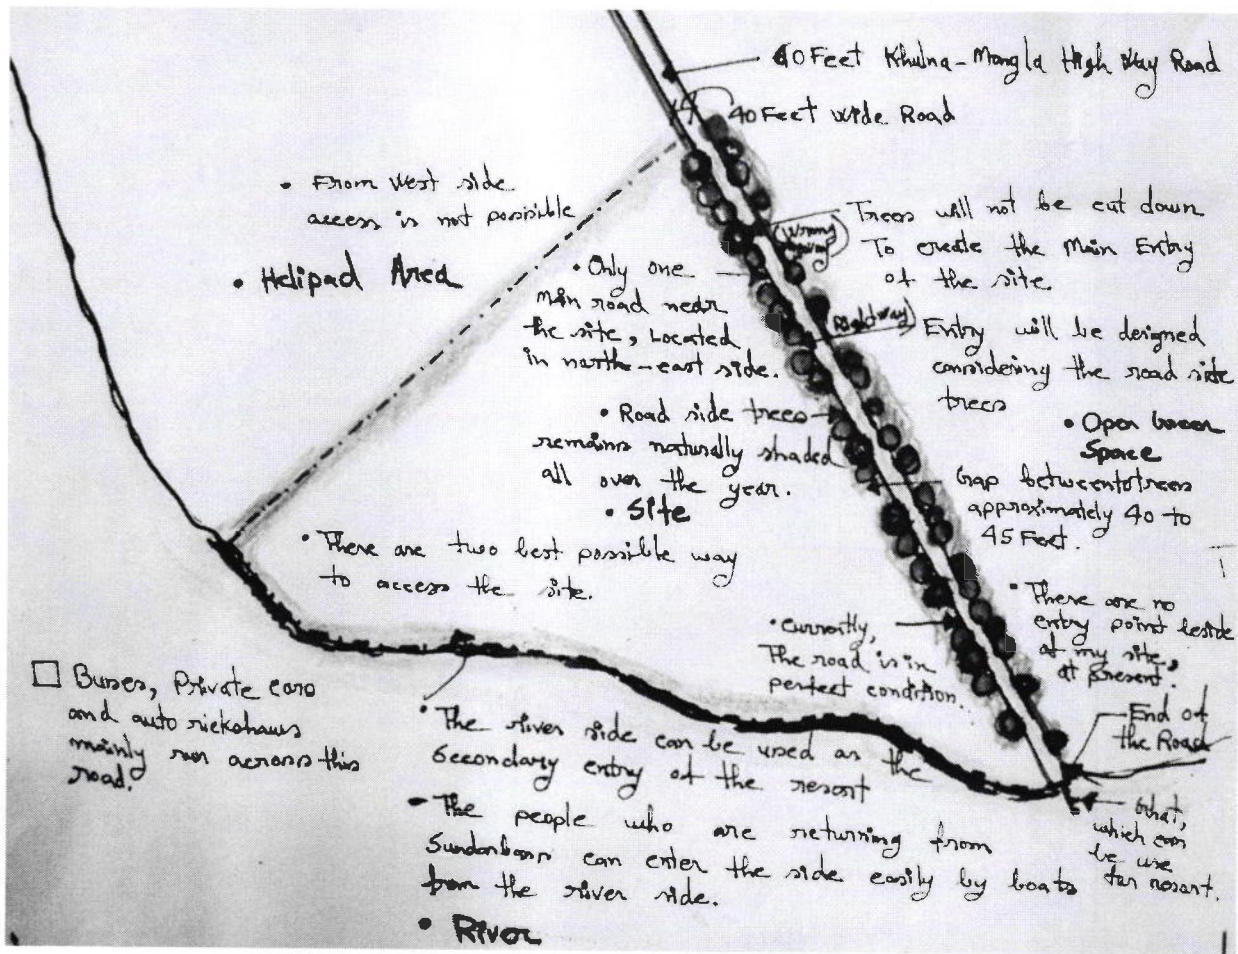 60 Feet Khulna-Mongla High Way Road
40 Feet wide Road
• From West side
access is not possible
• Helipad Area
(Wrong way)
Trees will not be cut down
To create the Main Entry
of the site.
• Only one
main road near
the site, Located
in north-east side.
Right way
Entry will be designed
considering the road side
trees
• Road side trees
remains naturally shaded
all over the year.
• Open Green
Space
Gap between trees
approximately 40 to
45 Feet.
• Site
• There are two best possible way
to access the site.
• There are no
entry point beside
of my site,
at present.
• Currently,
The road is in
perfect condition.
Buses, Private cars
and auto rickshaws
mainly run across this
road.
End of
the Road
• The river side can be used as the
Secondary entry of the resort
Ghat,
which can
be use
for resort.
• The people who are returning from
Sundarbans can enter the side easily by boats
from the river side.
• River